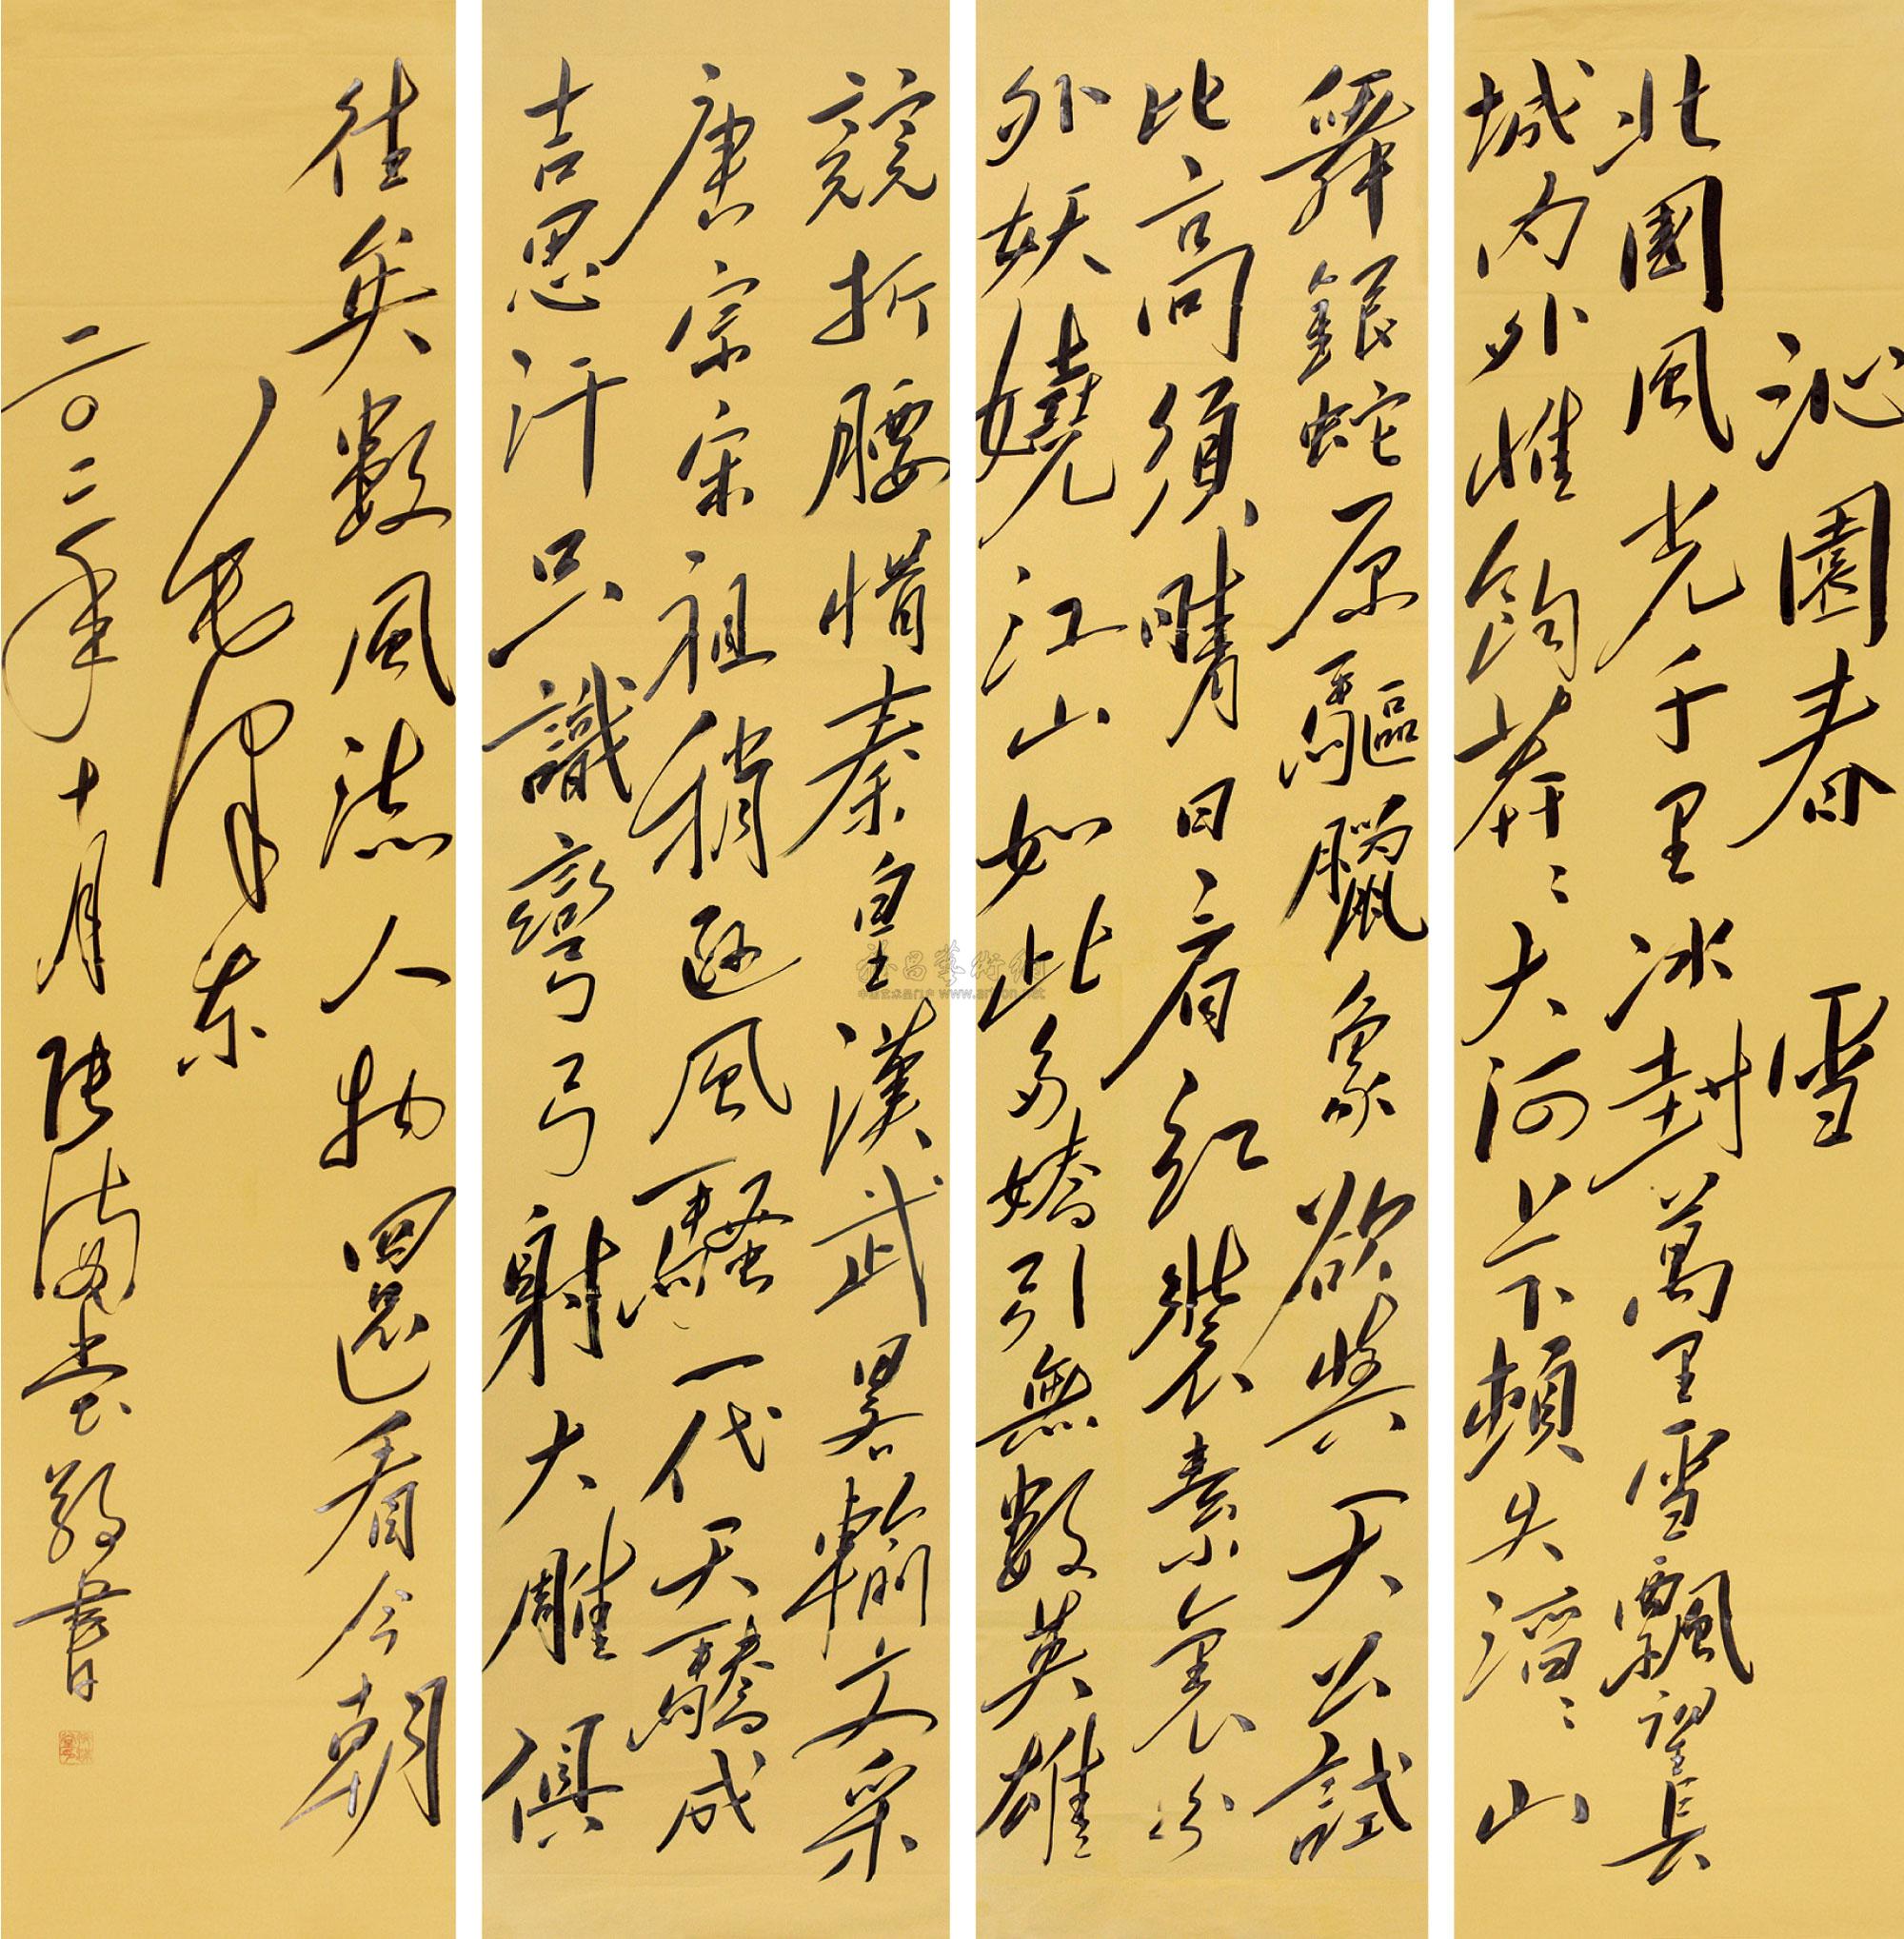 沁園春 雪
北國風光千里冰封萬里雪飄望長
城内外惟餘莽々大河上下頓失滔々山
舞銀蛇原驅臘象欲與天公試
比高須晴日看紅裝素裹分
外妖嬈江山如此多嬌引無數英雄
競折腰惜秦皇漢武畧輸文采
唐宗宋祖稍遜風騷一代天驕成
吉思汗只識彎弓射大雕俱
往矣數風流人物還看今朝
毛澤東
二〇一二年十月張滿堂敬書
雅昌藝術網
www.artron.net